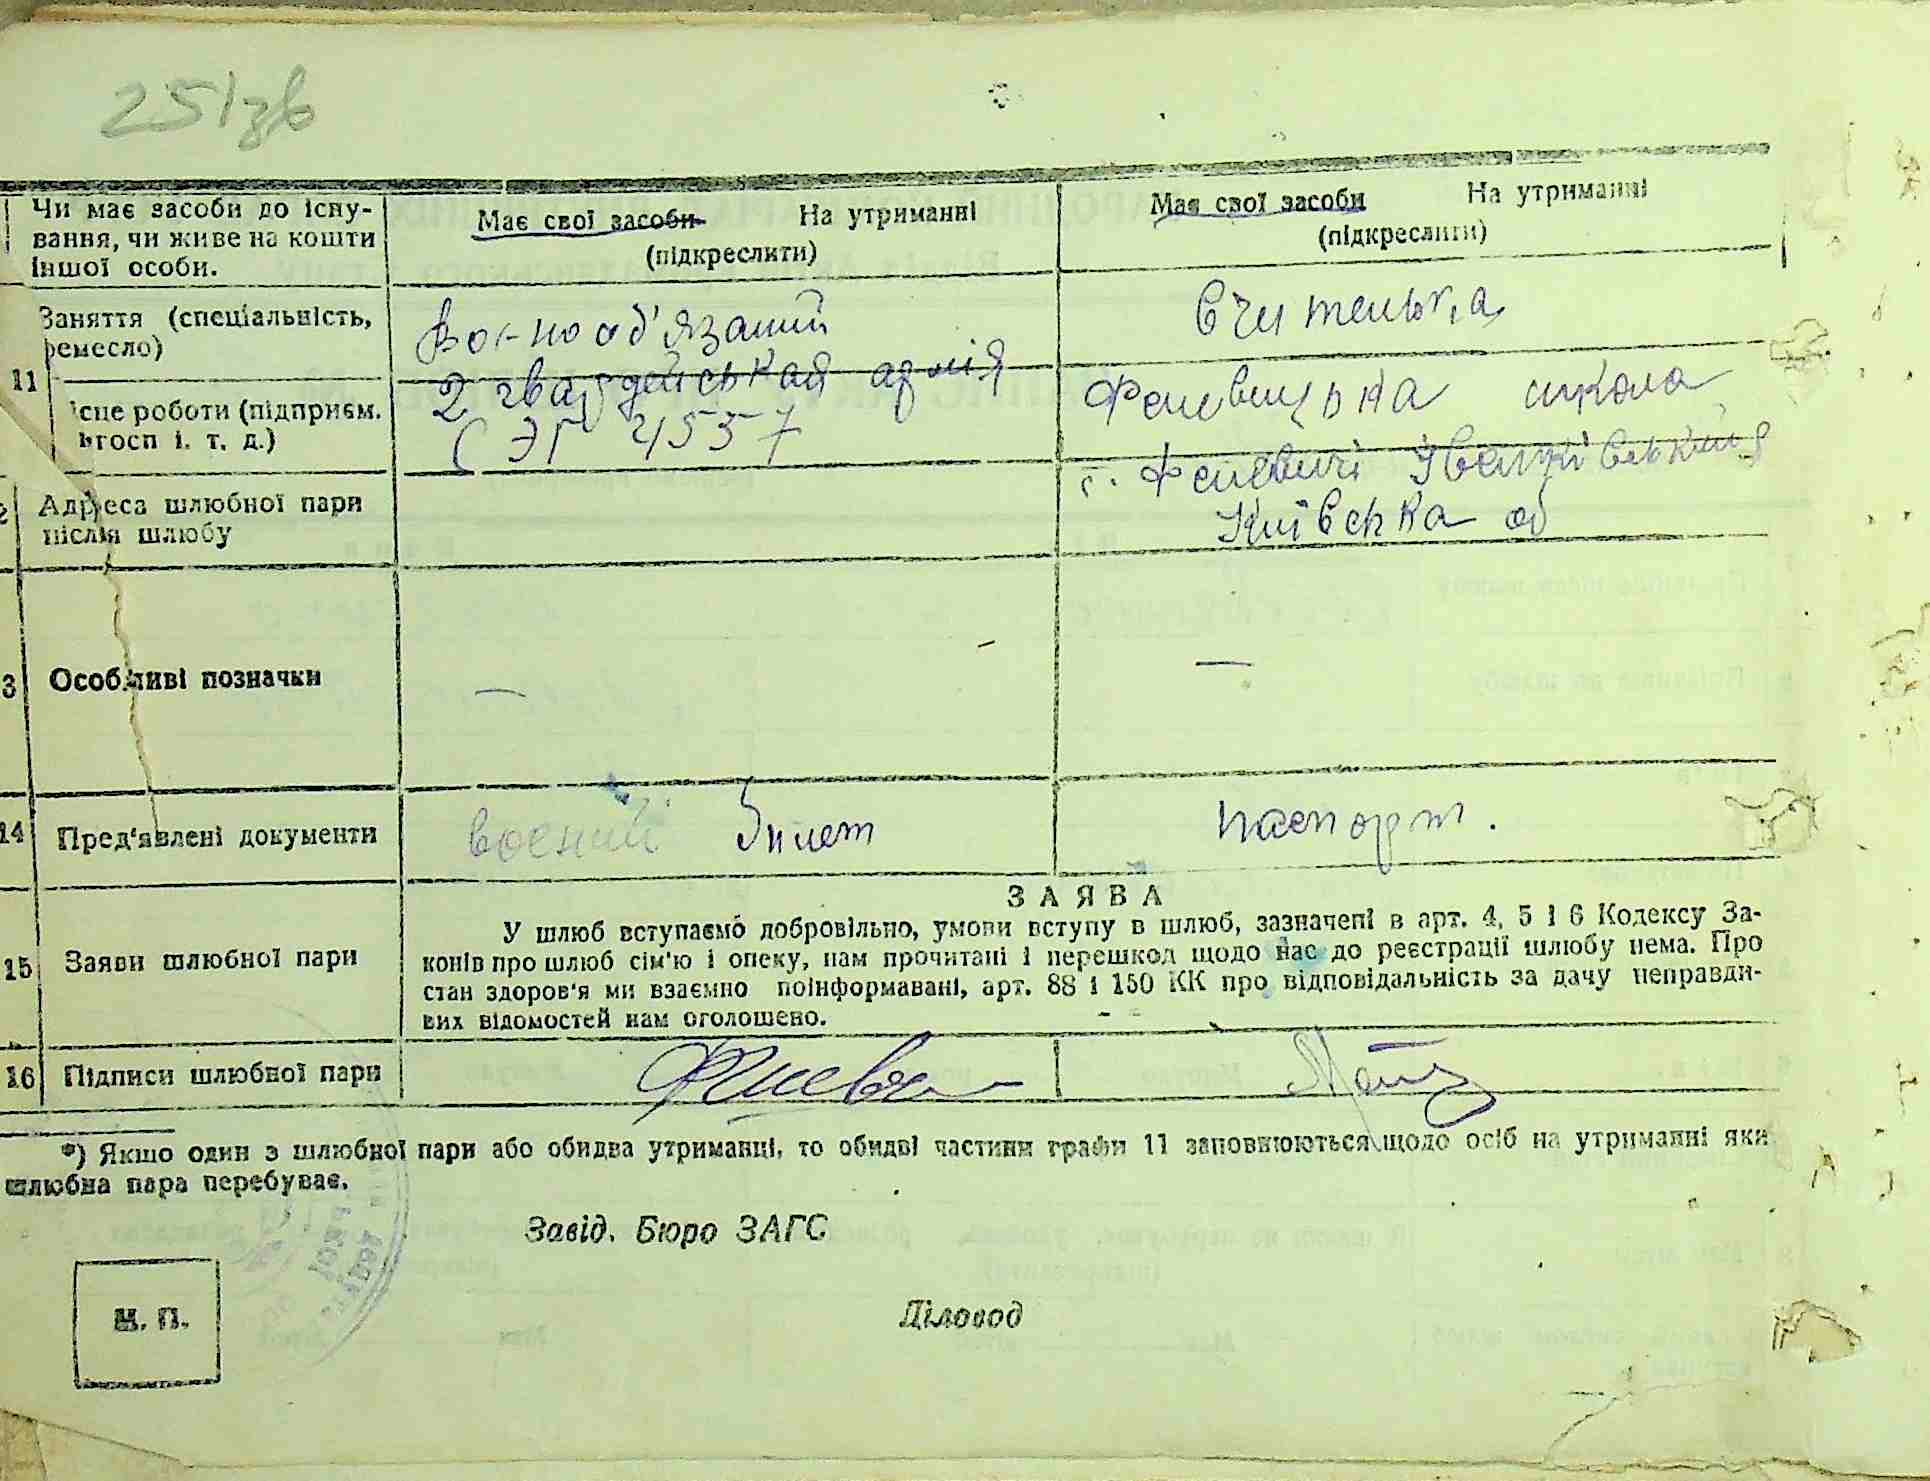 251зв
Чи має засоби до існу-
вання, чи живе на кошти
іншої особи.
Має свої засоби На утриманні
(підкреслити)
Має свої засоби На утриманні
(підкреслити)
11
Заняття (спеціальність,
ремесло)
Воєнообʼязаний
Вчителька
існе роботи (підприєм.
ьгосп і. т. д.)
2 гвардейськая армія
СЭГ 4557
Феневицька школа
Адреса шлюбної пари
після шлюбу
с. Феневичі Іванківський
Київська об
3
Особливі позначки
—
—
14
Пред'явлені документи
воєний билет
паспорт.
15
Заяви шлюбної пари
ЗАЯВА
У шлюб вступаємо добровільно, умови вступу в шлюб, зазначені в арт. 4, 5 і 6 Кодексу За-
конів про шлюб сім'ю і опеку, нам прочитані і перешкод щодо нас до реєстрації шлюбу нема. Про
стан здоров'я ми взаємно поінформавані, арт. 88 і 150 КК про відповідальність за дачу неправди-
вих відомостей нам оголошено.
16
Підписи шлюбної пари
*) Якщо один з шлюбної пари або обидва утриманці, то обидві частини графи 11 заповнюються щодо осіб на утриманні яких
шлюбна пара перебуває.
Завід. Бюро ЗАГС
Діловод
М. П.